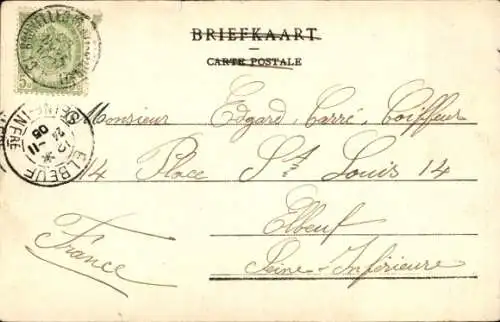 BRIEFKAART
CARTE POSTALE
BRUXELLES
5
ELBEUF
SEINE-INFRE
12
11
05
Monsieur Edgard Carré, Coiffeur
14 Place St Louis 14
Elbeuf
Seine-Inférieure
France